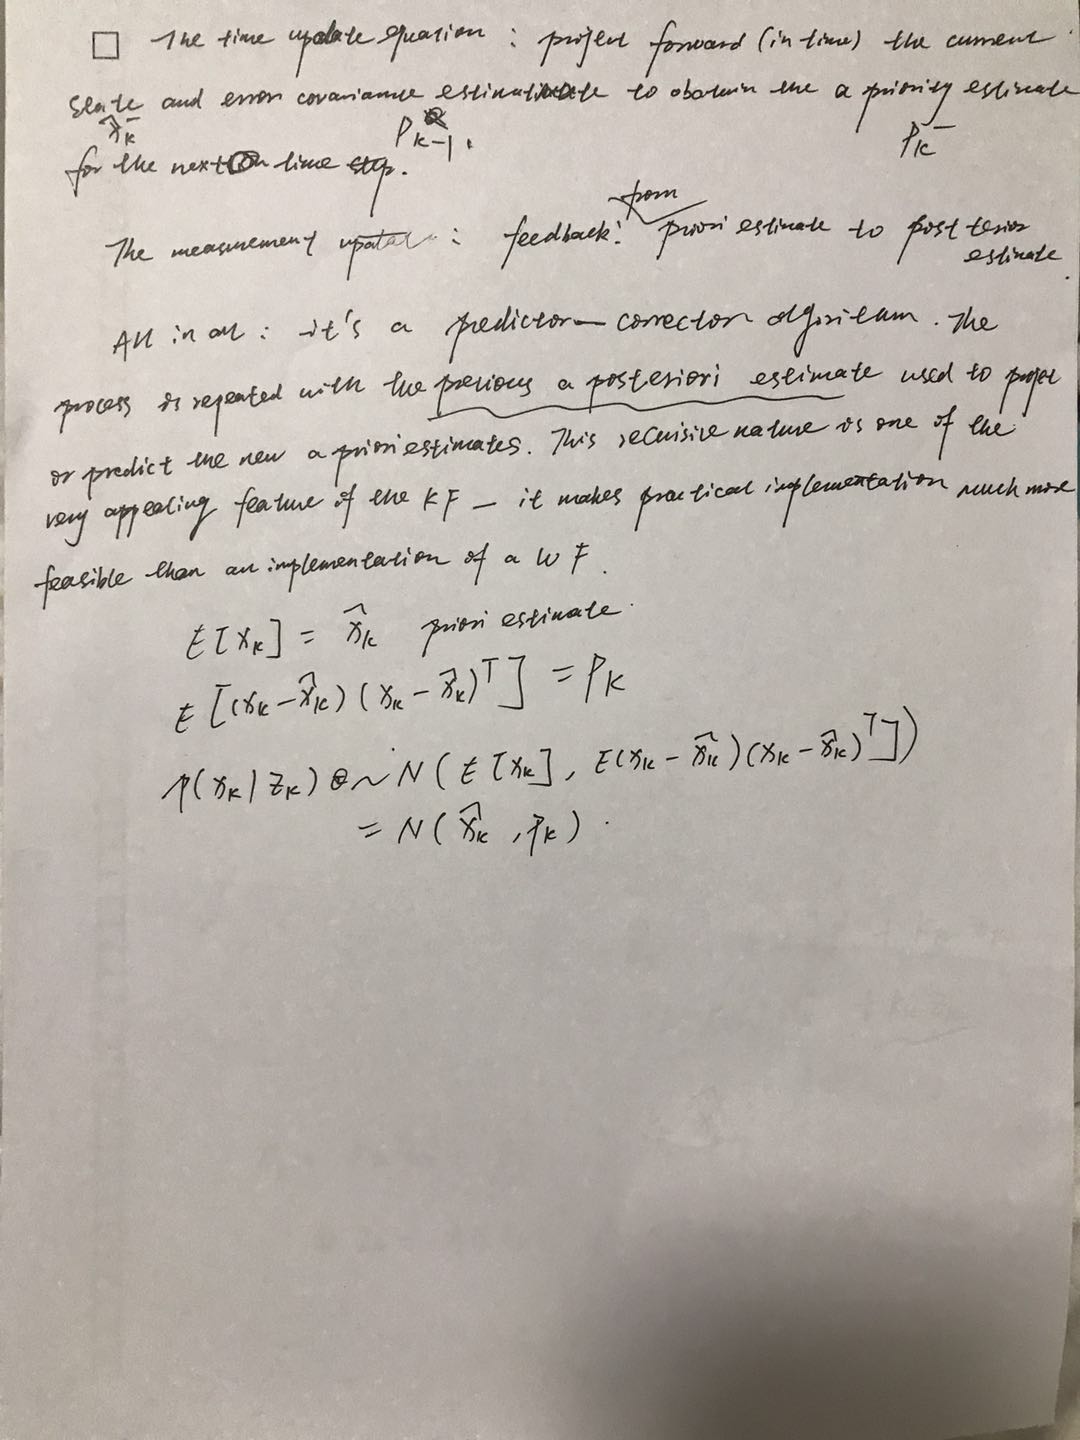 □ The time update equation : project forward (in time) the current
state and error covariance estimate to obtain the a priority estimate
x̂ₖ⁻ Pₖ₋₁. Pₖ⁻
for the next time step.
from
The measurement update : feedback: priori estimate to posterior
estimate.
All in all : it's a predictor — corrector algorithm. The
process is repeated with the previous a posteriori estimate used to project
or predict the new a priori estimates. This recuisive nature is one of the
very appealing feature of the KF – it makes practical implementation much more
feasible than an implementation of a WF.
E[xₖ] = x̂ₖ priori estimate.
E[(xₖ-x̂ₖ)(xₖ-x̂ₖ)ᵀ] = Pₖ
p(xₖ|zₖ) ~ N(E[xₖ], E(xₖ-x̂ₖ)(xₖ-x̂ₖ)ᵀ])
= N(x̂ₖ, Pₖ).